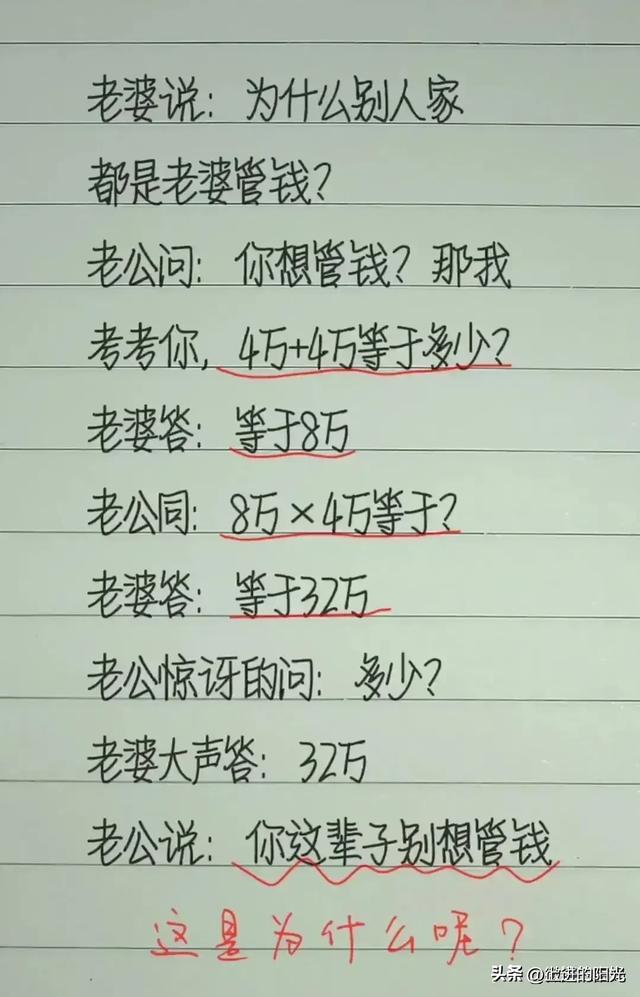 老婆说：为什么别人家
都是老婆管钱？
老公问：你想管钱？那我
考考你，4万+4万等于多少？
老婆答：等于8万
老公同：8万×4万等于？
老婆答：等于32万
老公惊讶的问：多少？
老婆大声答：32万
老公说：你这辈子别想管钱
这是为什么呢？
头条 @微进的阳光